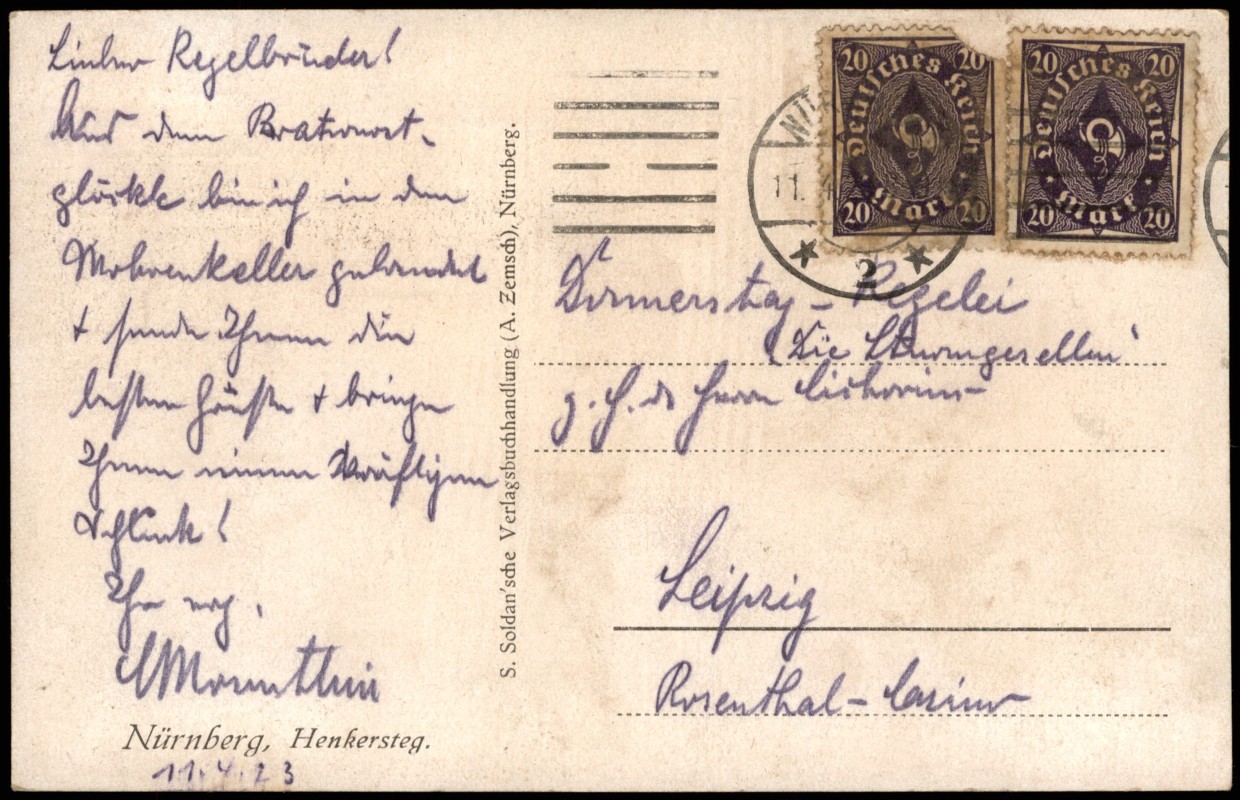 Lieber Kegelbrüder!
Aus dem Bratwurst-
glöckle bin ich in den
Mohrenkeller gelandet
+ sende Ihnen die
besten Grüße + bringe
Ihnen einen kräftigen
Schluck!
Ihr erg.
Nürnberg, Henkersteg.
11.4.23
S. Soldan'sche Verlagsbuchhandlung (A. Zemsch), Nürnberg.
20 20
Deutsches Reich
Mark
20 20
20 20
Deutsches Reich
Mark
20 20
11. 4
2
Donnerstag – Kegelei
"Die Sturmgesellen"
z. H. d. Herrn
Leipzig
Rosenthal – Casino